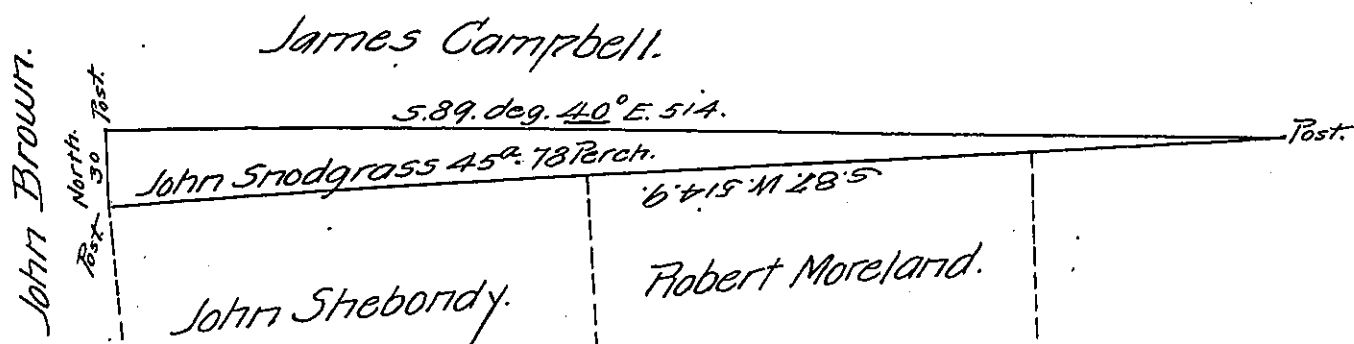 James Campbell.
John Brown.
Post.
North.
30
Post
S.89. deg. 40° E. 514.
Post.
John Snodgrass 45a. 78 Perch.
S.87.W.514.9.
John Shebondy.
Robert Moreland.